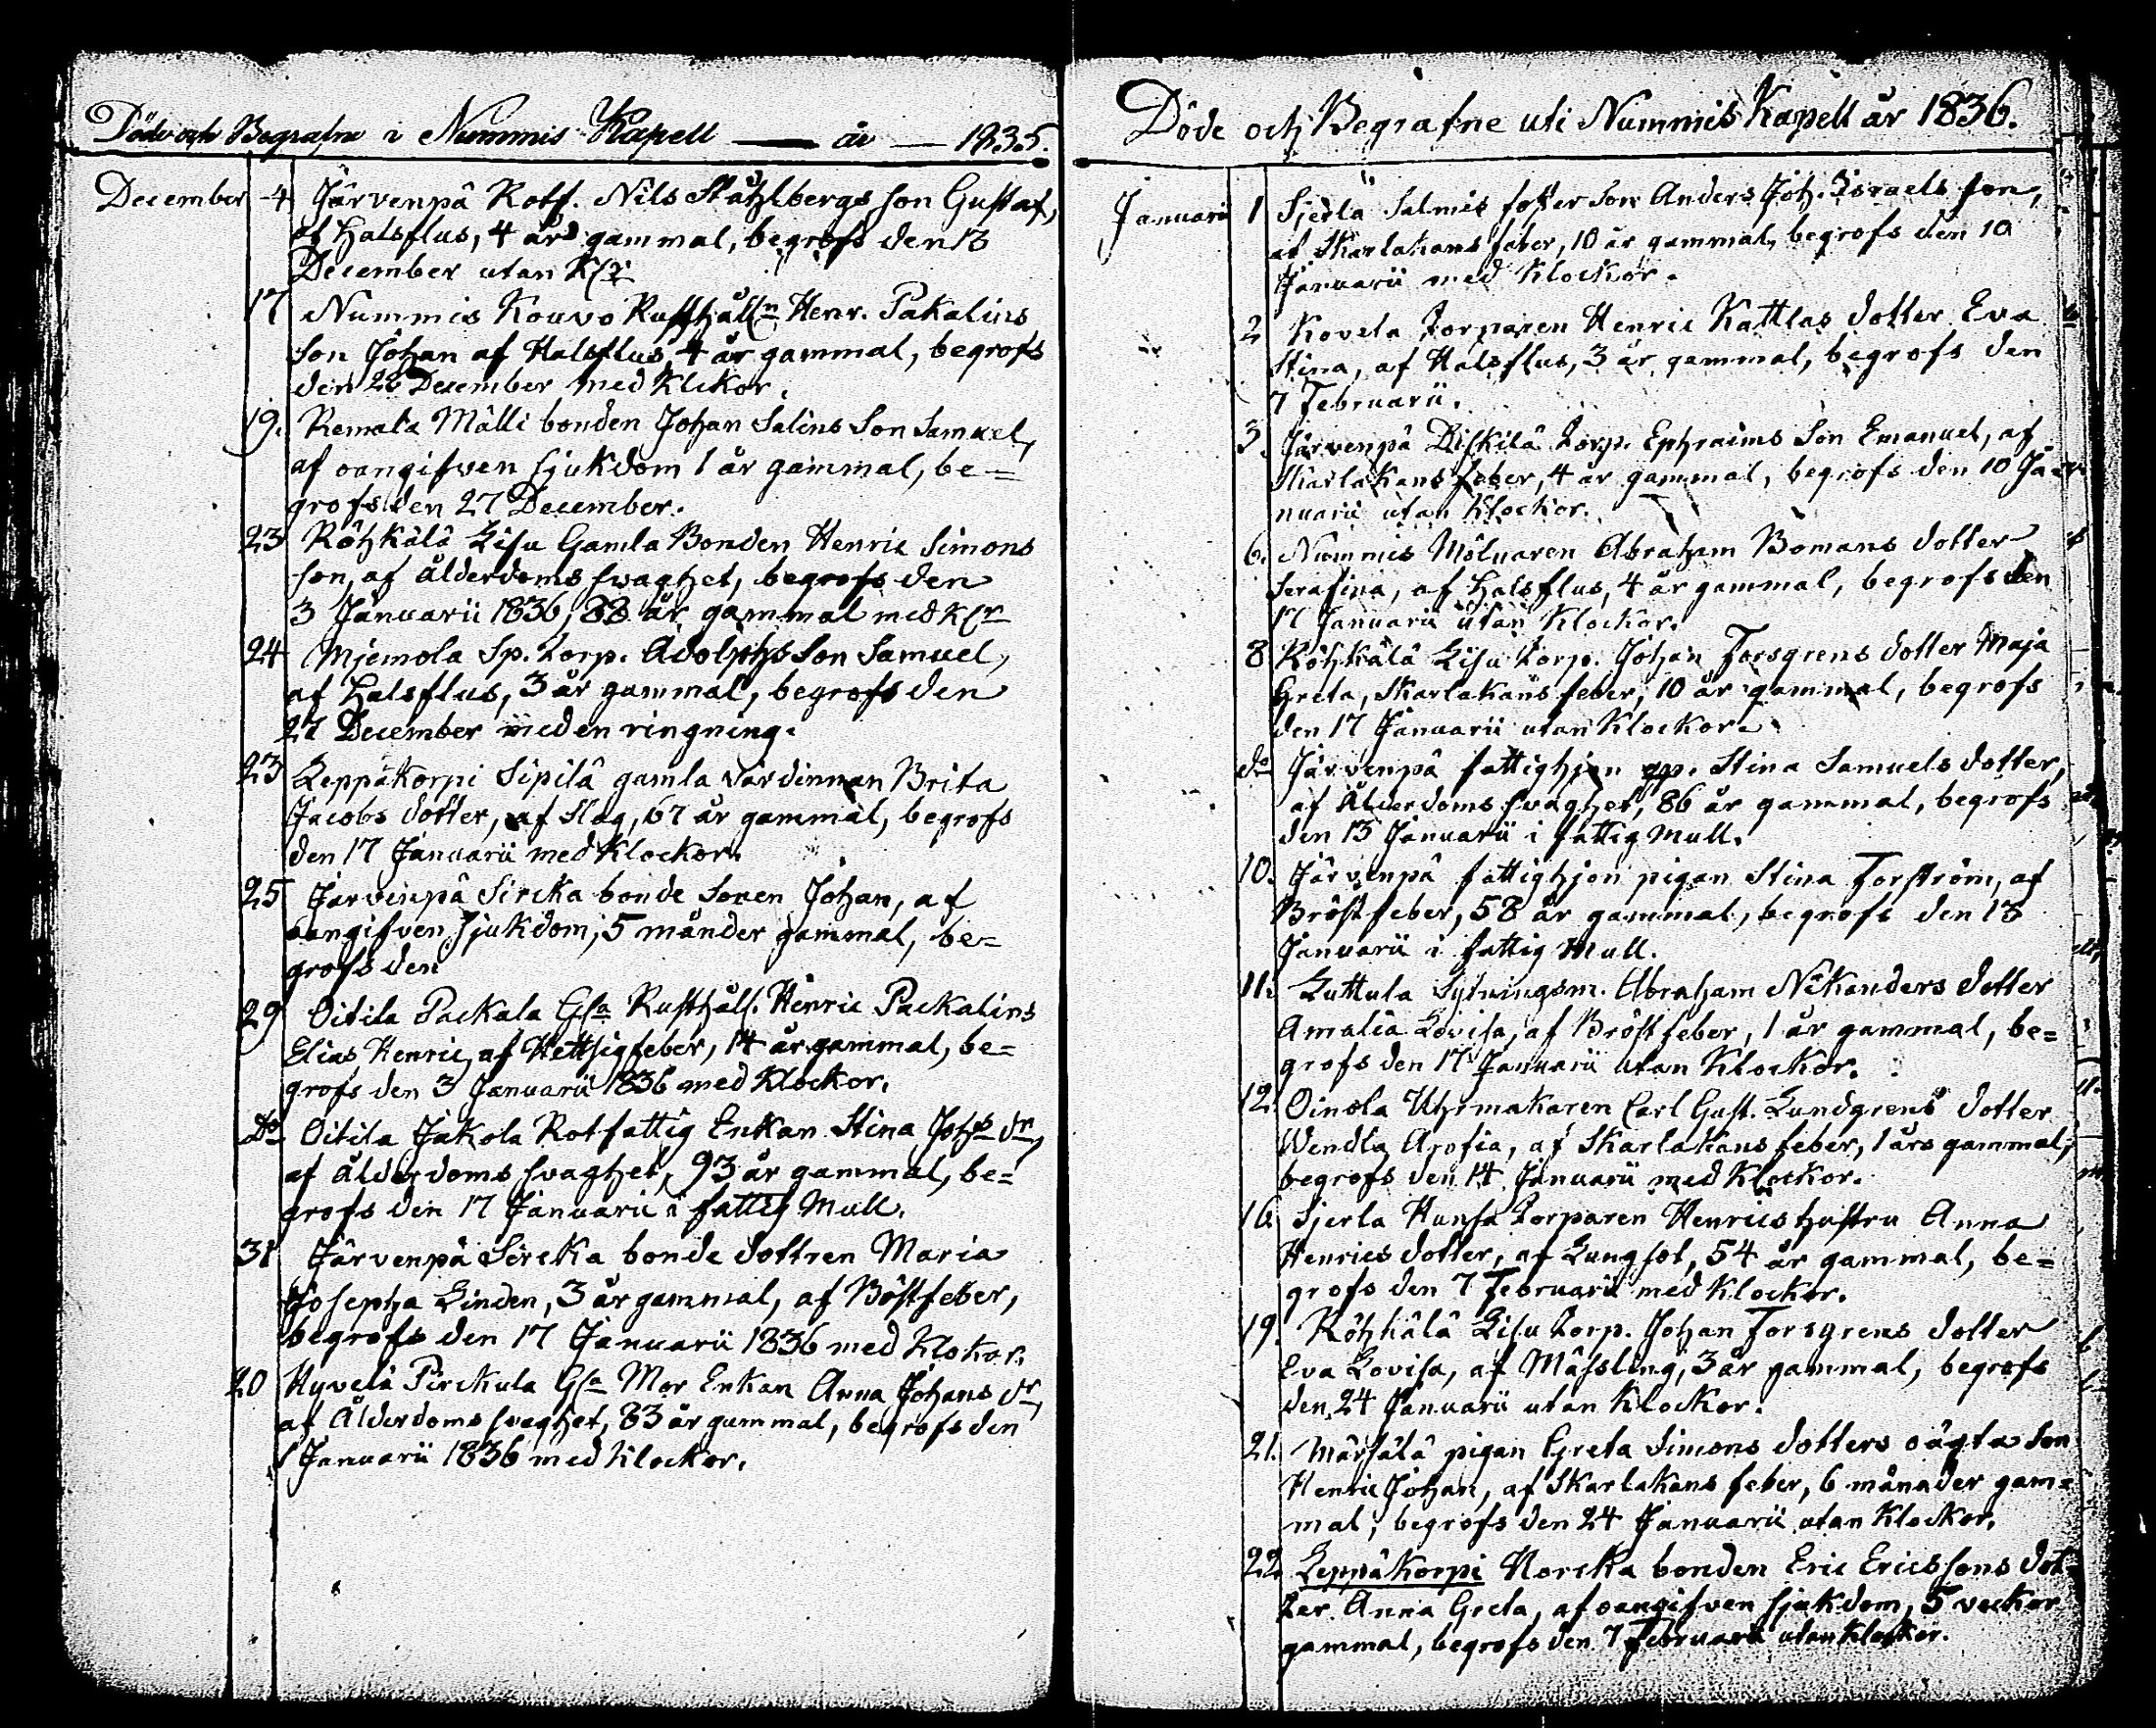 Döde och Begrafne i Nummis Kapell — år — 1835.
December 4 Järvenpä Rotf. Nils Ståhlbergs son Gustaf,
af Halsflus, 4 års gammal, begrofs den 13
December utan Klr
17 Nummis Kouvo Rusthålln Henr. Pakalins
Son Johan af Halsflus, 4 år gammal, begrofs
den 26 December med Klckor.
19. Remala Mälli bonden Johan Salins Son Samuel,
af oangifven sjukdom 1 år gammal, be=
grofs den 27 December.
23 Röhkälä Lisu Gamla Bonden Henric Simons
son, af Ålderdoms svaghet, begrofs den
3 Januarii 1836, 88 år gammal med Klr
24 Mjemola Sp. Torp. Adolphs Son Samuel,
af Halsflus, 3 år gammal, begrofs den
27 December med en ringning.
23 Leppäkorpi Sipilä gamla värdinnan Brita
Jacobs dotter, af Slag, 67 år gammal, begrofs
den 17 Januarii med Klockor.
25 Järvenpä Sircka bonde Sonen Johan, af
oangifven sjukdom, 5 månder gammal, be=
grofs den
29 Oitila Packala Gla Rusthåll. Henric Packalins
Elias Henric, af Hettsigfeber, 14 år gammal, be=
grofs den 3 Januarii 1836 med Klockor.
Do Oitila Jakola Rotfattig Enkan Stina Johs dr,
af ålderdoms svaghet, 93 år gammal, be=
grofs den 17 Januarii i fattig Mull.
31 Järvenpä Sircka bonde dottren Maria
Josepha Linden, 3 år gammal, af Böstfeber,
begrofs den 17 Januarii 1836 med Klokor.
20 Hyvelä Pirckula Gla Mor Enkan Anna Johans dr,
af Ålderdoms svaghet, 83 år gammal, begrofs den
1 Januarii 1836 med Klockor.
Döde och Begrafne uti Nummis Kapell år 1836.
Januarii 1 Sjerla Salmis foster Son Anders Joh. Israels son,
af Skarlakans feber, 10 år gammal, begrofs den 10
Januarii med Klockor.
2 Kovela Torparen Henric Kattlas dotter Eva
Stina, af Halsflus, 3 år gammal, begrofs den
7 Februarii.
3. Järvenpä Diskilä Torp. Ephraims Son Emanuel, af
Skarlakans feber, 4 år gammal, begrofs den 10 Ja=
nuarii utan Klockor.
6. Nummis Mölnaren Abraham Bomans dotter
Serafina, af Halsflus, 4 år gammal, begrofs den
17 Januarii utan Klockor.
8 Röhkälä Lisu Torp. Johan Forsgrens dotter Maja
Greta, Skarlakans feber, 10 år gammal, begrofs
den 17 Januarii utan Klockor.
do Järvenpä fattighjon gp. Stina Samuels dotter,
af Ålderdoms svaghet, 86 år gammal, begrofs
den 13 Januarii i fattig mull.
10. Järvenpä fattighjon pigan Stina Forström, af
Bröstfeber, 58 år gammal, begrofs den 18
Januarii i fattig Mull.
11. Luttula Sytningsm. Abraham Nikanders dotter
Amalia Lovisa, af Bröstfeber, 1 år gammal, be=
grofs den 17 Januarii utan Klockor.
12. Oinola Uhrmakaren Carl Gust. Lundgrens dotter
Wendla Arofia, af Skarlakans feber, 1 års gammal,
begrofs den 14 Januarii med Klockor.
16. Sjerla Hunsa Torparen Henrics hustru Anna
Henrics dotter, af Lungsot, 54 år gammal, be=
grofs den 7 Februarii med Klockor.
19. Röhkälä Lisu Torp. Johan Forsgrens dotter
Eva Lovisa, af Mässling, 3 år gammal, begrofs
den 24 Januarii utan Klockor.
21. Märsälä pigan Greta Simons dotters oägta Son
Henric Johan, af Skarlakans feber, 6 månader gam=
mal, begrofs den 24 Januarii utan Klockor.
22. Leppäkorpi Norcka bonden Eric Ericssons dot=
ter Anna Greta, af oangifven sjukdom, 5 veckor
gammal, begrofs den 7 Februarii utan Klockor.